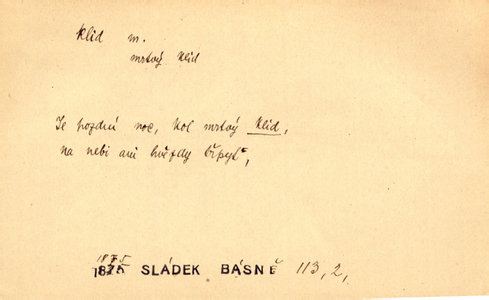 klid m.
mrtvý klid
Je pozdní noc, kol mrtvý klid,
na nebi ani hvězdy třpyt,
1875
1875 SLÁDEK BÁSNĚ 113, 2,